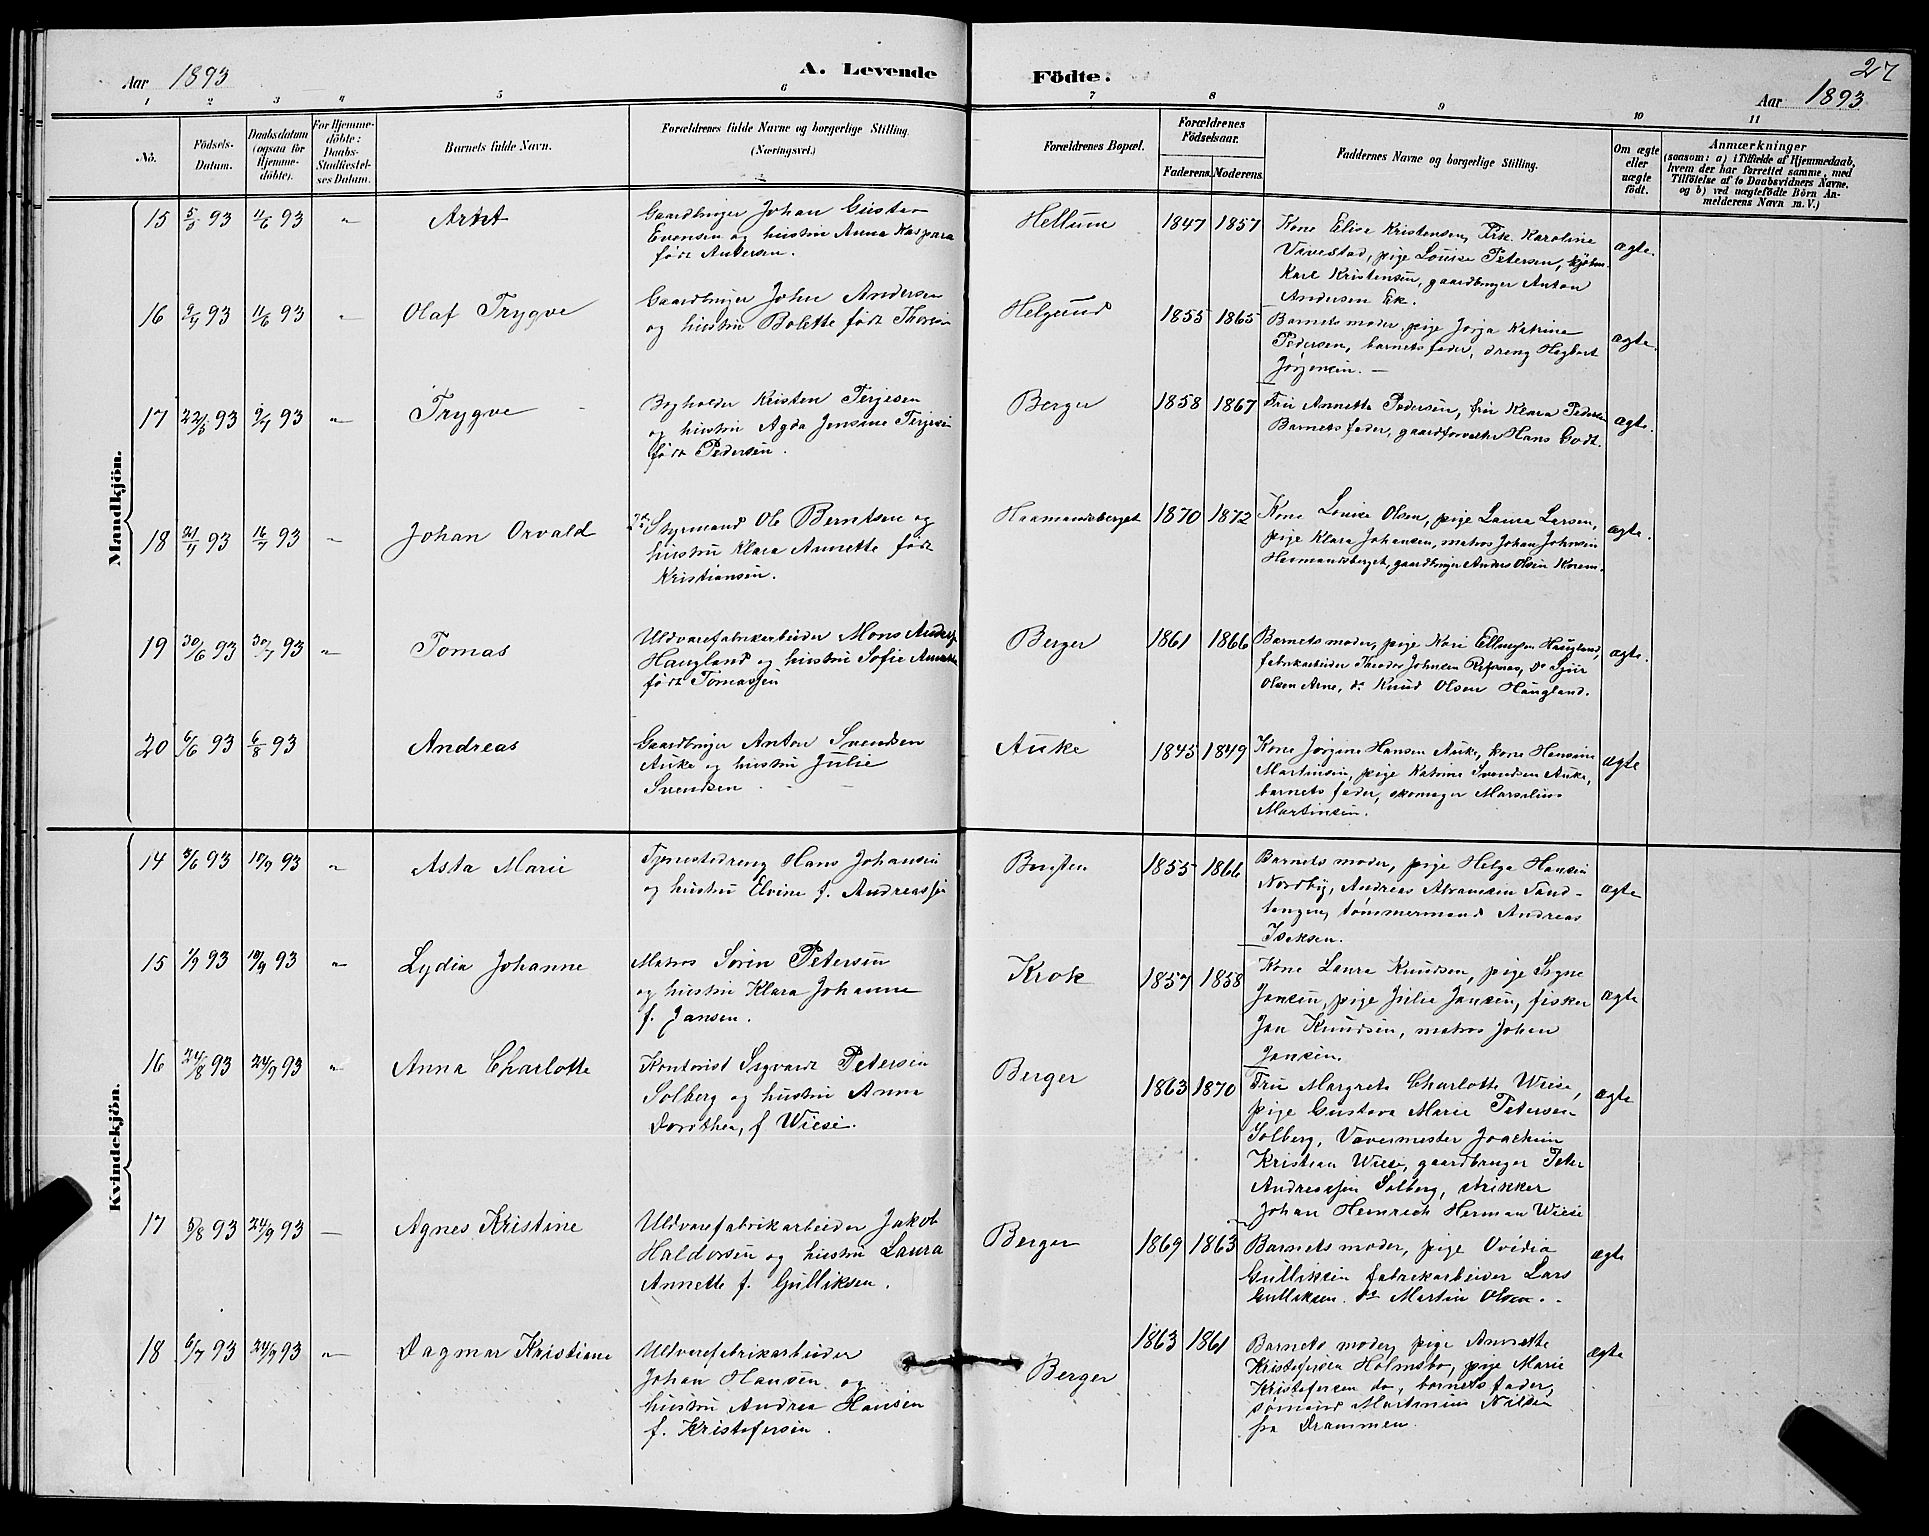 Aar 1893
A. Levende
Födte.
27
Aar 1893
1 2 3 4 5 6 7 8 9 10 11
No.
Födsels-
Datum.
Daabsdatum
(ogsaa for
Hjemme-
döbte).
For Hjemme-
döbte:
Daabs-
Stadfæstel-
ses Datum.
Barnets fulde Navn.
Forældrenes fulde Navne og borgerlige Stilling.
(Næringsvei.)
Forældrenes Bopæl.
Forældrenes
Födselsaar.
Faderens. Moderens.
Faddernes Navne og borgerlige Stilling.
Om ægte
eller
uægte
födt.
Anmærkninger
(saasom: a) i Tilfælde af Hjemmedaab,
hvem der har forrettet samme, med
Tilföielse af to Daabsvidners Navne.
og b) ved uægtefödte Börn An-
melderens Navn m. V.)
Mandkjön.
15 5/3 93 11/6 93 "
Arnt
Gaardbruger Johan Gustav
Evensen og hustru Anna Kaspara
født Andersen.
Hellum
1847 1857
Kone Elise Kristensen, Frk. Karoline
Vivestad, pige Louise Petersen, kjøbm.
Karl Kristensen, gaardbruger Anton
Andersen Ek.
ægte.
16 9/4 93 11/6 93 "
Olaf Trygve
Gaardbruger John Andersen
og hustru Bolette født Thorsen
Helgeund
1855 1865
Barnets moder, pige Jørgia Katrine
Pedersen, barnets fader, dreng Hagbart
Jørgensen. —
ægte.
17 22/3 93 9/7 93 "
Trygve
Bogholder Kristen Terjesen
og hustru Agda Jensine Terjesen
født Pedersen.
Berger
1858 1867
Fru Annette Pedersen, fru Klara Pedersen
Barnets fader, gaardforvalter Hans Godt.
ægte.
18 21/4 93 16/7 93 "
Johan Orvald
2den Styrmand Ole Berntsen og
hustru Klara Annette født
Kristiansen.
Haamandsberget
1870 1872
Kone Louise Olsen, pige Laura Larsen,
pige Klara Johansen, matros Johan Johnsen
Hermandsberget, gaardbruger Anders Olsen Korem.
ægte.
19 30/6 93 30/7 93 "
Tomas
Uldvarefabrikarbeider Mons Anders.
Haugland og hustru Sofie Amalia
født Tomassen
Berger
1861 1866
Barnets moder, pige Kari Ellingsen Haugland,
fabrikarbeider Teodor Johnsen Refsnes, do Sjur
Olsen Arne, do Knud Olsen Haugland.
ægte.
20 6/6 93 6/8 93
Andreas
Gaardbruger Anton Svendsen
Auke og hustru Julie
Svendsen
Auke
1845 1849
Kone Jørgine Hansen Auke, kone Hansine
Martinsen, pige Katrine Svendsen Auke,
barnets fader, skomager Marselius
Martinsen.
ægte
Kvindekjön.
14 3/6 93 10/9 93 "
Asta Marie
Tjenestedreng Hans Johansen
og hustru Elvine f. Andreassen
1855 1866
Barnets moder, pige Helga Hansen
Nordby, Andreas Abramsen Sand-
tangen, tømmermand Andreas
Isaksen.
ægte
15 1/7 93 10/9 93 "
Lydia Johanne
Matros Søren Petersen
og hustru Klara Johanne
f. Jansen.
Krok
1857 1858
Kone Laura Knudsen, pige Signe
Jansen, pige Julie Jansen, fisker
Jan Knudsen, matros Johan
Jansen.
ægte
16 24/8 93 24/9 93 "
Anna Charlotte
Kontorist Sigvardt Petersen
Solberg og hustru Anna
Dorothea, f. Wiese.
Berger
1863 1870
Fru Margrete Charlotte Wiese,
pige Gustava Marie Petersen
Solberg, Vævermester Joachim
Kristian Wiese, gaardbruger Peter
Andreassen Solberg, strikker
Johan Heinrich Herman Wiese
ægte
17 5/8 93 24/9 93 —
Agnes Kristine
Uldvarefabrikarbeider Jakob
Haldorsen og hustru Laura
Annette f. Gulliksen.
Berger
1869 1863
Barnets moder, pige Ovidia
Gulliksen fabrikarbeider Lars
Gulliksen. do Martin Olsen.
ægte
18 6/7 93 24/9 93 "
Dagmar Kristiane
Uldvarefabrikarbeider
Johan Hansen og
hustru Andrea Hansen
f. Kristofersen.
Berger
1863 1861
Barnets moder, pige Annette
Kristofersen Holmsbo, pige Marie
Kristofersen do, barnets fader,
sømand Martinius Nilsen
fra Drammen.
ægte